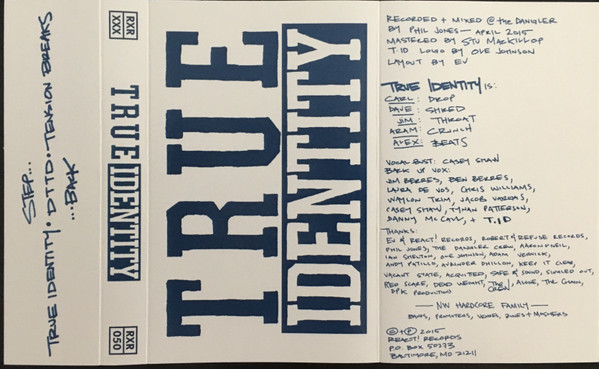 STEP...
TRUE IDENTITY · DTID · TENSION BREAKS
...BACK
RXR
XXX
TRUE IDENTITY
RXR
050
TRUE
IDENTITY
RECORDED + MIXED @ THE DANGLER
BY PHIL JONES — APRIL 2015
MASTERED BY STU MACKILLOP
T.ID LOGO BY OLE JOHNSON
LAYOUT BY EV
TRUE IDENTITY IS:
CARL: DROP
DAVE: SHRED
JIM: THROAT
ARAM: CRUNCH
ALEX: BEATS
VOCAL BUST: CASEY SHAW
BACK UP VOX:
JIM BERRES, BEN BERRES,
LAURA DE VOS, CHRIS WILLIAMS,
WAYLON TRIM, JACOB VARGAS,
CASEY SHAW, TYNAN PATTERSON,
DANNY McCAUL, + T.ID
THANKS:
EV @ REACT! RECORDS, ROBERT @ REFUSE RECORDS,
PHIL JONES, THE DANGLER CREW, AARON O'NEIL,
IAN SHELTON, OLE JOHNSON, ADAM VERNICK,
ANDY PATILLO, AVRINDER DHILLON, KEEP IT CLEAR,
VACANT STATE, ACQUITTED, SAFE & SOUND, SINGLED OUT,
RED SCARE, DEAD WEIGHT, CREW, ALONE, THE CHAIN,
DPK PRODUCTIONS
— NW HARDCORE FAMILY —
BANDS, PROMOTERS, VENUES, ZINES + MOSHERS
© + ℗ 2015
REACT! RECORDS
P.O. BOX 50273
BALTIMORE, MD 21211